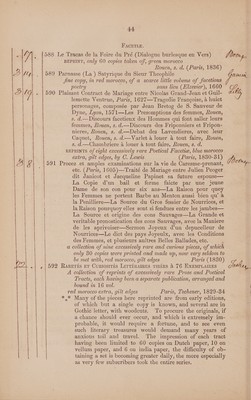 44
Facetiæ.
589 Le Tracas de la Foire du Pré (Dialogue burlesque en Vers)
reprint, only 60 copies taken off, green morocco
Rouen, s. d. (Paris, 1836)
589 Parnasse (Le) Satyrique du Sieur Theophile
fine copy, in red morocco, of a scarce little volume of facetious
poetry sans lieu (Elzevir), 1660
590 Plaisant Contrat de Mariage entre Nicolas Grand-Jean et Guil-
lemette Ventrue, Paris, 1627—Tragedie Françoise, à huict
personnages, composée par Jean Bretog de S. Sauveur de
Dyne, Lyon, 1571—Les Presomptions des femmes, Rouen,
s. d.—Discours facetieux des Hommes qui font saller leurs
femmes, Rouen, s. d.—Discours des Friponniers et Fripon-
nieres, Rouen, s. d.—Debat des Lavendieres, avec leur
Caquet, Rouen, s. d.—Varlet à louer à tout faire, Rouen,
s. d.—Chambriere à louer à tout faire, Rouen, s. d.
reprints of eight excessively rare Poetical Facetiæ, blue morocco
extra, gilt edges, by C. Lewis (Paris, 1830-31)
591 Proces et amples examinations sur la vie de Caresme-prenant,
etc. (Paris, 1605)—Traité de Mariage entre Julien Peoger
dit Janicot et Jacqueline Papinet sa future espouse—
La Copie d'un bail et ferme faicte par une jeune
Dame de son con pour six ans—La Raison pour quoy
les Femmes ne portent Barbe au Menton aussi bien qu'à
la Penilliere—La Source du Gros fessier de Nourrices, et
la Raison pourquoy elles sont si fendues entre les jambes—
La Source et origine des cons Sauvages—La Grande et
veritable pronostication des cons Sauvages, avec la Maniere
de les aprivoiser—Sermon Joyeux d'un depucelleur de
Nourrices—Le dict des pays Joyeulx, avec les Conditions
des Femmes, et plusieurs autres Belles Ballades, etc.
a collection of nine excessively rare and curious pieces, of which
only 30 copies were printed and made up, now very seldom to
be met with, red morocco, gilt edges (Paris (1830)
592 Recueil de Curiosités Littéraires à 76 Exemplaires
A collection of reprints of excessively rare Prose and Poetical
Tracts, each having been a separate publication, arranged and
bound in 16 vol.
red morocco extra, gilt edges Paris, Techener, 1829-34
*** Many of the pieces here reprinted are from early editions,
of which but a single copy is known, and several are in
Gothic letter, with woodcuts. To procure the originals, if
a chance should ever occur, and which is extremely im-
probable, it would require a fortune, and to see even
such literary treasures would demand many years of
anxious toil and travel. The impression of each tract
having been limited to 60 copies on Dutch paper, 10 on
vellum paper, and 6 on india paper, the difficulty of ob-
taining a set is becoming greater daily, the more especially
as very few subscribers took the entire series.